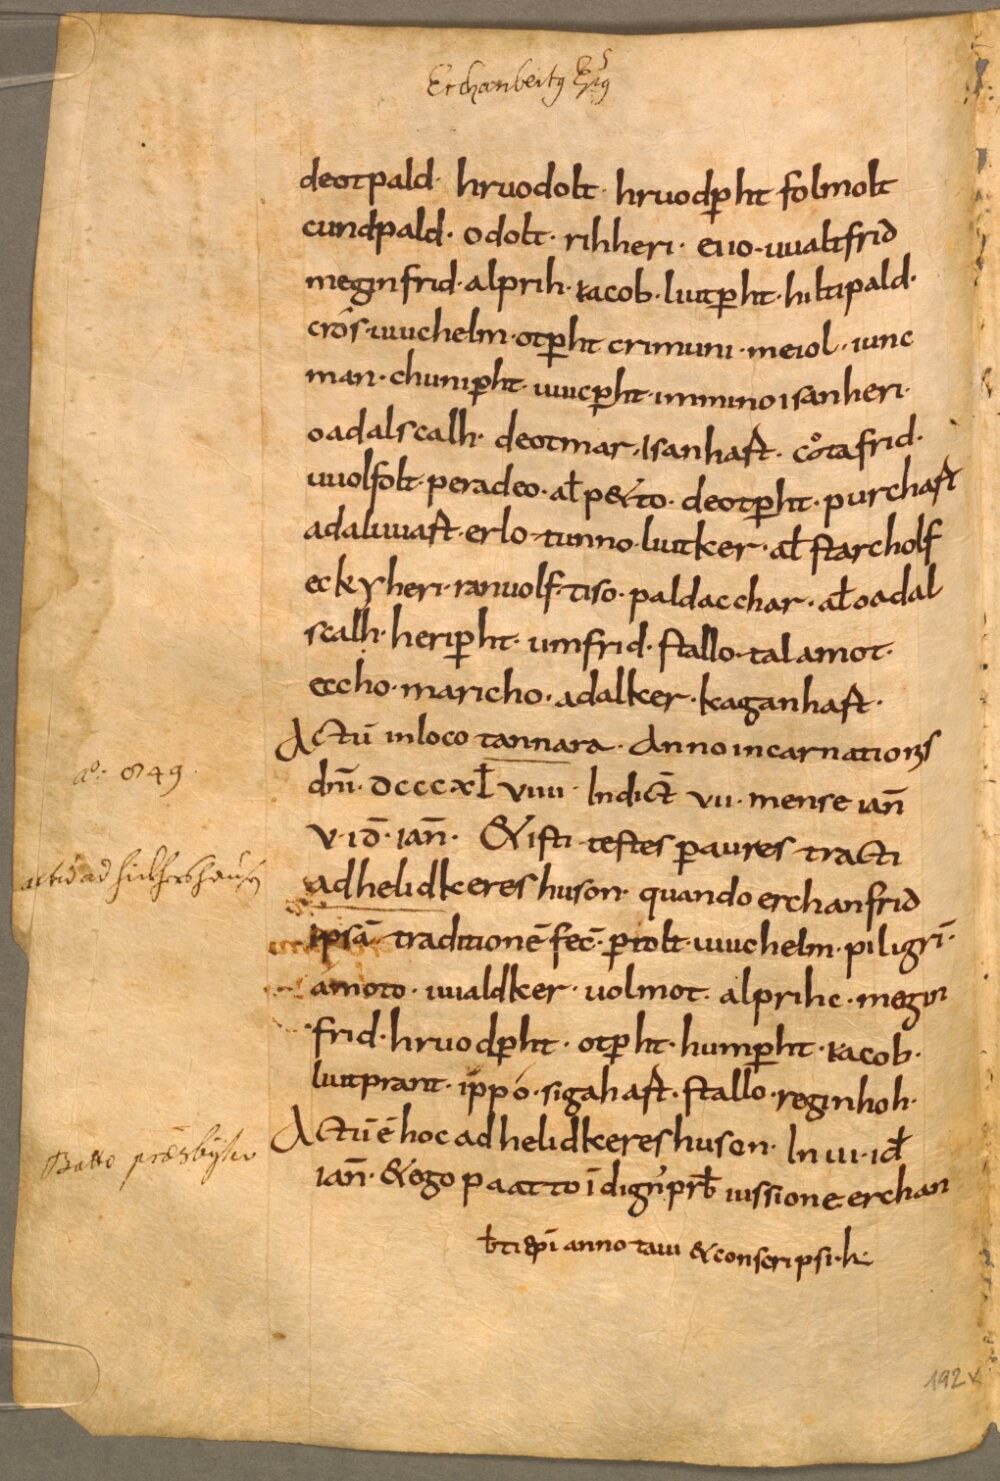 Erchanbertꝰ Epꝰ
deotpald· hruodolt· hruodp̄ht folmolt
cundpald· odolt· rihheri· euo·uualtfrid
meginfrid·alprih·iacob·liutp̄ht·hiltipald·
crōs·uuichelm·otp̄ht crimuni·meiol·iunc
man·chunip̄ht·uuicp̄ht·immino isanheri·
oadalscalh· deotmar·isanhaft· cotafrid·
uuolfolt·peradeo·aƚ p&to· deotp̄ht·purchaft
adaluuaft·erlo·tunno·liutker·aƚ starcholf
eckyheri·ranuolf·tiso·paldacchar·aƚ oadal
scalh·herip̄ht·umfrid·stallo·talamot·
eccho·maricho·adalker·kaganhaft·
Actū in loco tannara· Anno incarnationis
dn̄i·dcccxƚ viiii· Indict̄ vii·mense ian̄
v·id̄·ian̄· & isti testes p̄ aures tracti
ad helidkereshuson· quando erchanfrid
ipsā traditionē fec̄·p̄tolt·uuichelm·piligrī·
amoto·uualdker·uolmot·alprihc·megin
frid·hruodp̄ht·otp̄ht·hump̄ht·iacob·
liutprant·ippo·sigahaft·stallo·reginhoh·
Actū ē hoc ad helidkereshuson· In iii·id̄
ian̄· & ego paatto īdign' prb̄ iussione erchan
b̄ti ep̄i annotaui & conscripsi·k·
aº: 849·
actū ad hilkhershausen
Batto præsbyter
192v